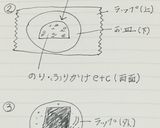 ②
ラップ(上)
お皿(下)
のり・ふりかけetc(両面)
③
ラップ(外)